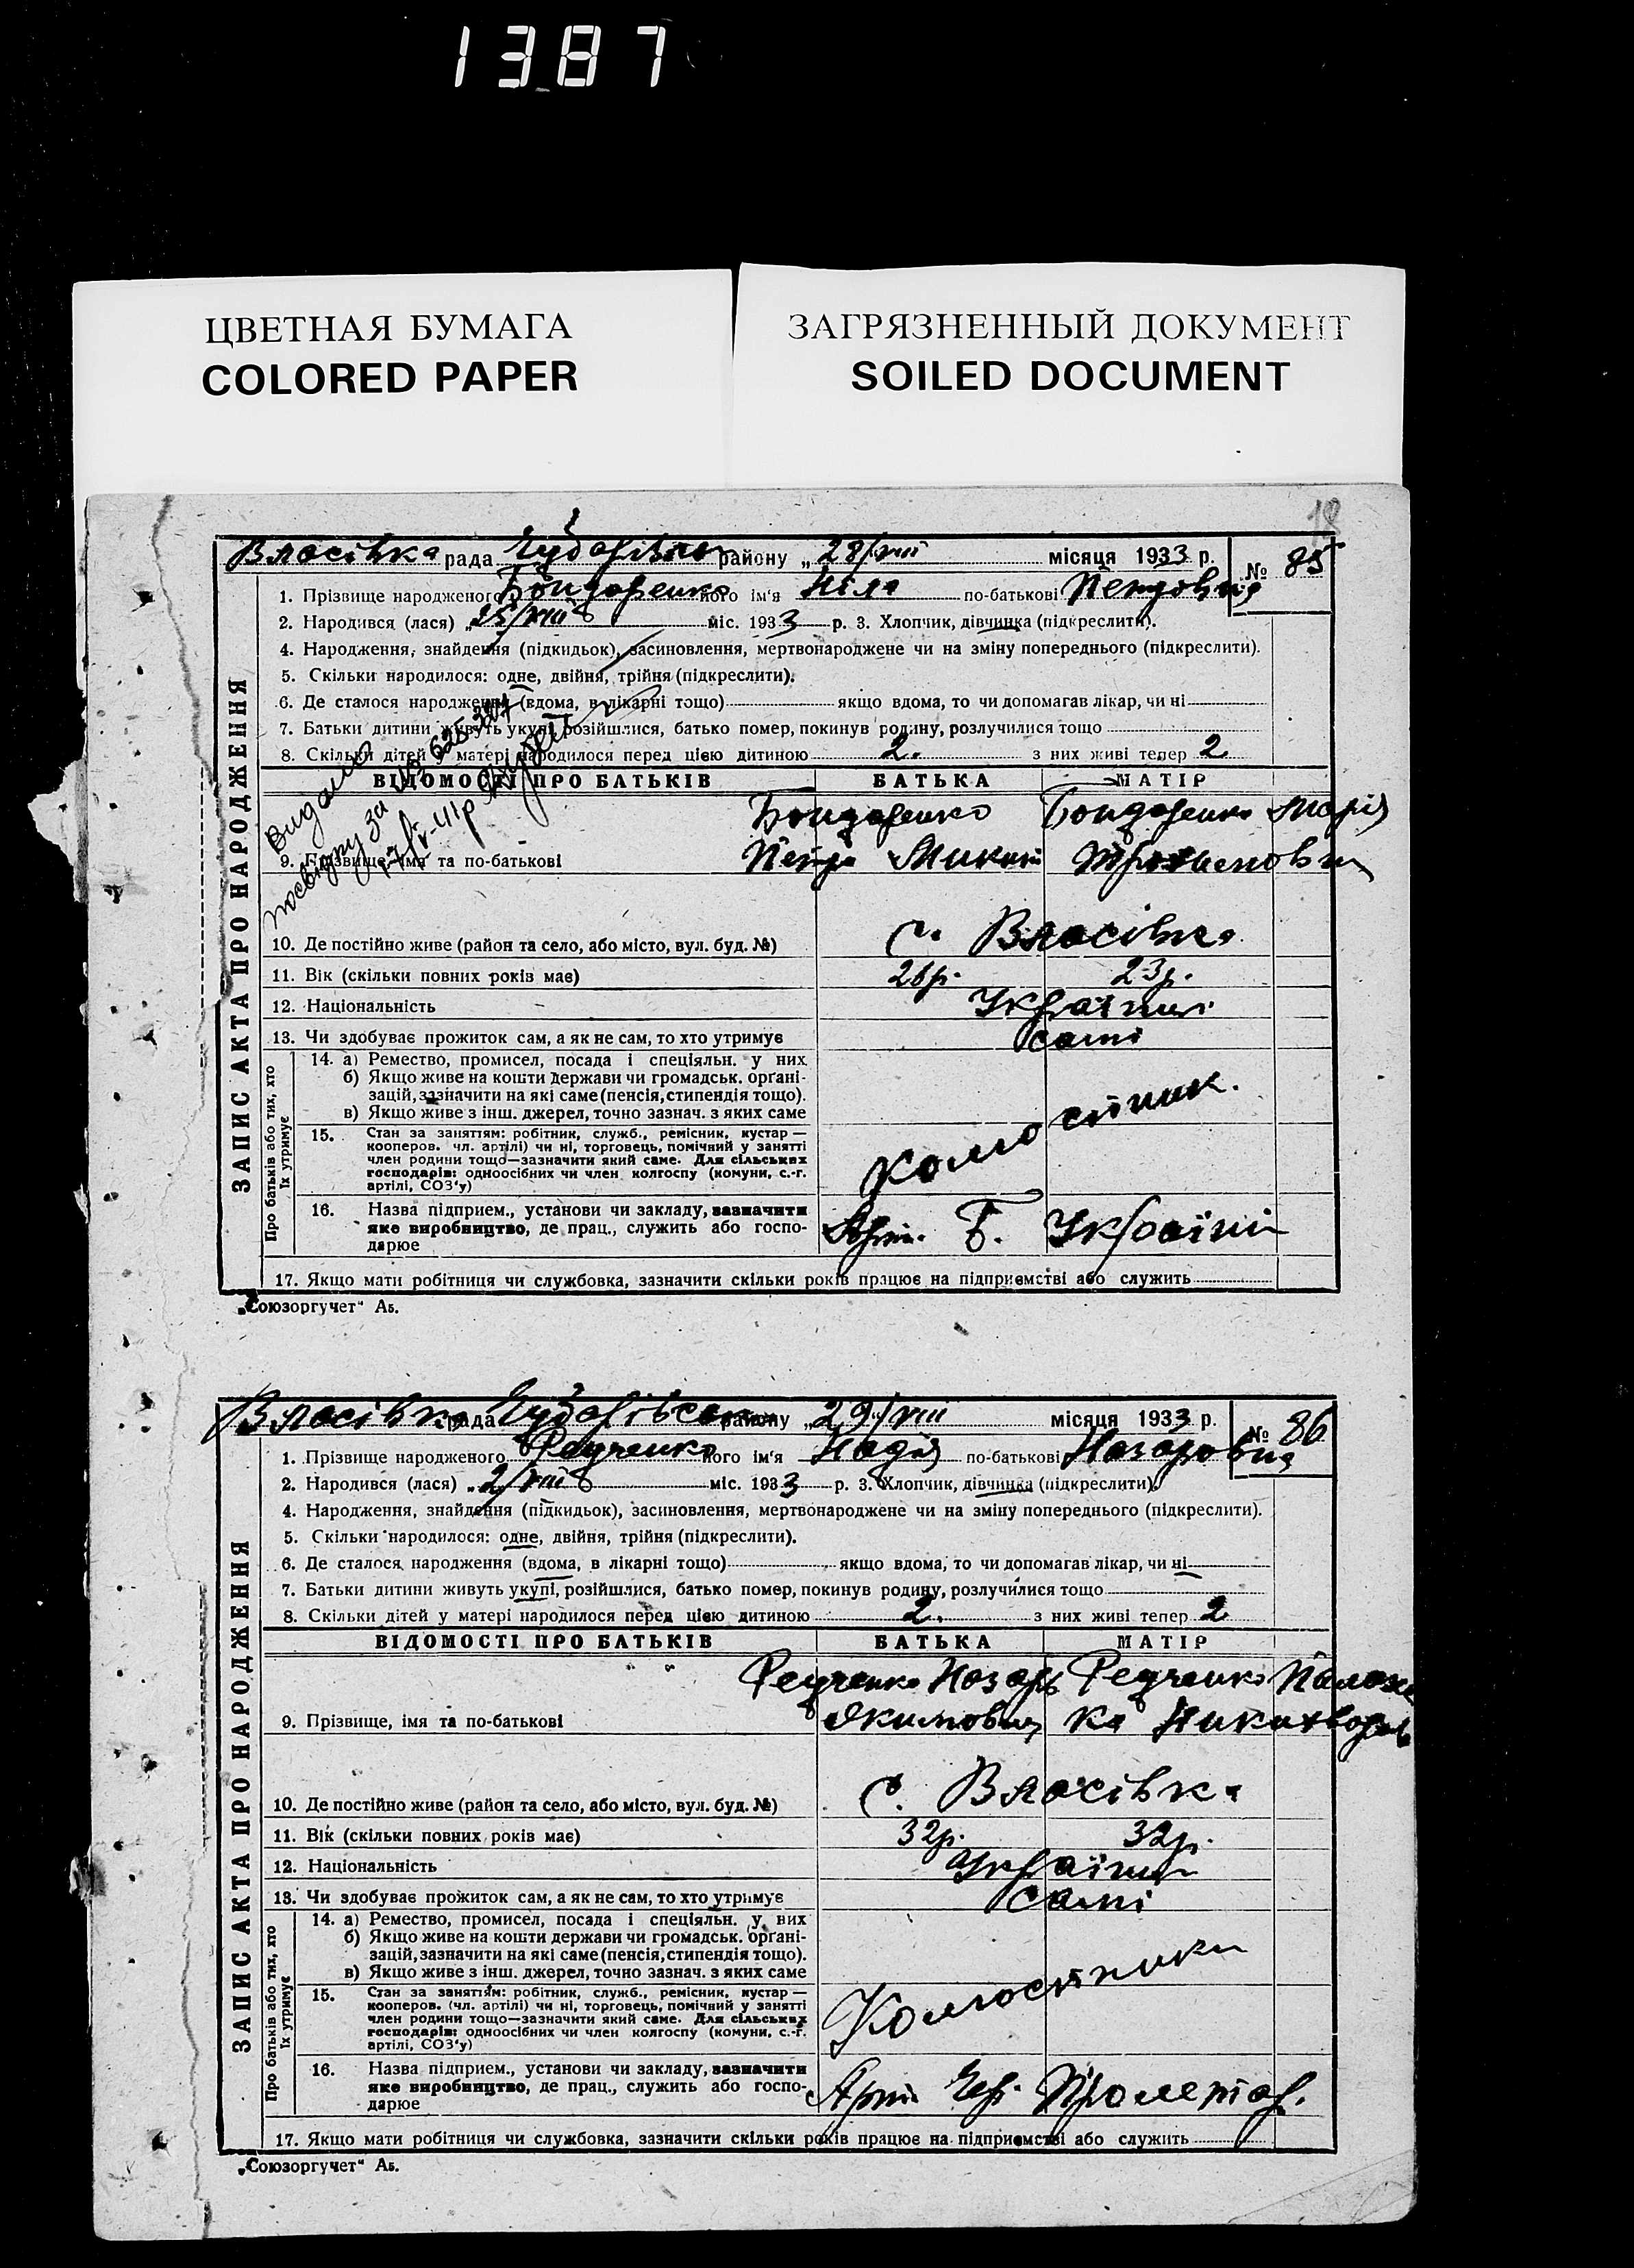 1387
ЦВЕТНАЯ БУМАГА
COLORED PAPER
ЗАГРЯЗНЕННЫЙ ДОКУМЕНТ
SOILED DOCUMENT
18
Власівка рада району „ 28/VIII місяця 1933 р. № 85
ЗАПИС АКТА ПРО НАРОДЖЕННЯ
1. Прізвище народженого Бондаренко його ім'я Ніла по-батькові Петровна
2. Народився (лася) „ 25/VIII міс. 1933 р. 3. Хлопчик, дівчинка (підкреслити).
4. Народження, знайдення (підкидьок), засиновлення, мертвонароджене чи на зміну попереднього (підкреслити).
5. Скільки народилося: одне, двійня, трійня (підкреслити).
6. Де сталося народження (вдома, в лікарні тощо) якщо вдома, то чи допомагав лікар, чи ні
7. Батьки дитини живуть укупі, розійшлися, батько помер, покинув родину, розлучилися тощо
8. Скільки дітей у матері народилося перед цією дитиною 2. з них живі тепер 2
ВІДОМОСТІ ПРО БАТЬКІВ БАТЬКА МАТІР
Видано
посвідку за №
Бондаренко Бондаренко Марія
9. Прізвище, імя та по-батькові Петро
10. Де постійно живе (район та село, або місто, вул. буд. №) с. Власівка
11. Вік (скільки повних років має) 26р. 23р.
12. Національність Українці
13. Чи здобуває прожиток сам, а як не сам, то хто утримує самі
Про батьків або тих, хто їх утримує
14. а) Ремество, промисел, посада і спеціяльн. у них
б) Якщо живе на кошти держави чи громадськ. орґані-
зацій, зазначити на які саме (пенсія, стипендія тощо).
в) Якщо живе з інш. джерел, точно зазнач. з яких саме
15. Стан за заняттям: робітник, служб., ремісник, кустар —
кооперов. чл. артілі) чи ні, торговець, помічний у занятті
член родини тощо—зазначити який саме. Для сільських
господарів: одноосібних чи член колгоспу (комуни, с.-г.
артілі, СОЗ'у)
16. Назва підприєм., установи чи закладу, зазначити
яке виробництво, де прац., служить або госпо-
дарює
Україні
17. Якщо мати робітниця чи службовка, зазначити скільки років працює на підприємстві або служить
„Союзоргучет“ Аб.
Власівка рада району „ 29/VIII місяця 1933 р. № 86
ЗАПИС АКТА ПРО НАРОДЖЕННЯ
1. Прізвище народженого Редченко його ім'я Надія по-батькові Назаровна
2. Народився (лася) „ 2/VIII міс. 1933 р. 3. Хлопчик, дівчинка (підкреслити).
4. Народження, знайдення (підкидьок), засиновлення, мертвонароджене чи на зміну попереднього (підкреслити).
5. Скільки народилося: одне, двійня, трійня (підкреслити).
6. Де сталося народження (вдома, в лікарні тощо) якщо вдома, то чи допомагав лікар, чи ні
7. Батьки дитини живуть укупі, розійшлися, батько помер, покинув родину, розлучилися тощо
8. Скільки дітей у матері народилося перед цією дитиною 2. з них живі тепер 2
ВІДОМОСТІ ПРО БАТЬКІВ БАТЬКА МАТІР
Редченко Назарь Редченко
9. Прізвище, імя та по-батькові Якимович
10. Де постійно живе (район та село, або місто, вул. буд. №) с. Власівка
11. Вік (скільки повних років має) 32р. 32р.
12. Національність Українці
13. Чи здобуває прожиток сам, а як не сам, то хто утримує самі
Про батьків або тих, хто їх утримує
14. а) Ремество, промисел, посада і спеціяльн. у них
б) Якщо живе на кошти держави чи громадськ. орґані-
зацій, зазначити на які саме (пенсія, стипендія тощо).
в) Якщо живе з інш. джерел, точно зазнач. з яких саме
15. Стан за заняттям: робітник, служб., ремісник, кустар —
кооперов. (чл. артілі) чи ні, торговець, помічний у занятті
член родини тощо—зазначити який саме. Для сільських
господарів: одноосібних чи член колгоспу (комуни, с.-г.
артілі, СОЗ'у)
16. Назва підприєм., установи чи закладу, зазначити
яке виробництво, де прац., служить або госпо-
дарює
Арт. Чер. Пролетар.
17. Якщо мати робітниця чи службовка, зазначити скільки років працює на підприємстві або служить
„Союзоргучет“ Аб.